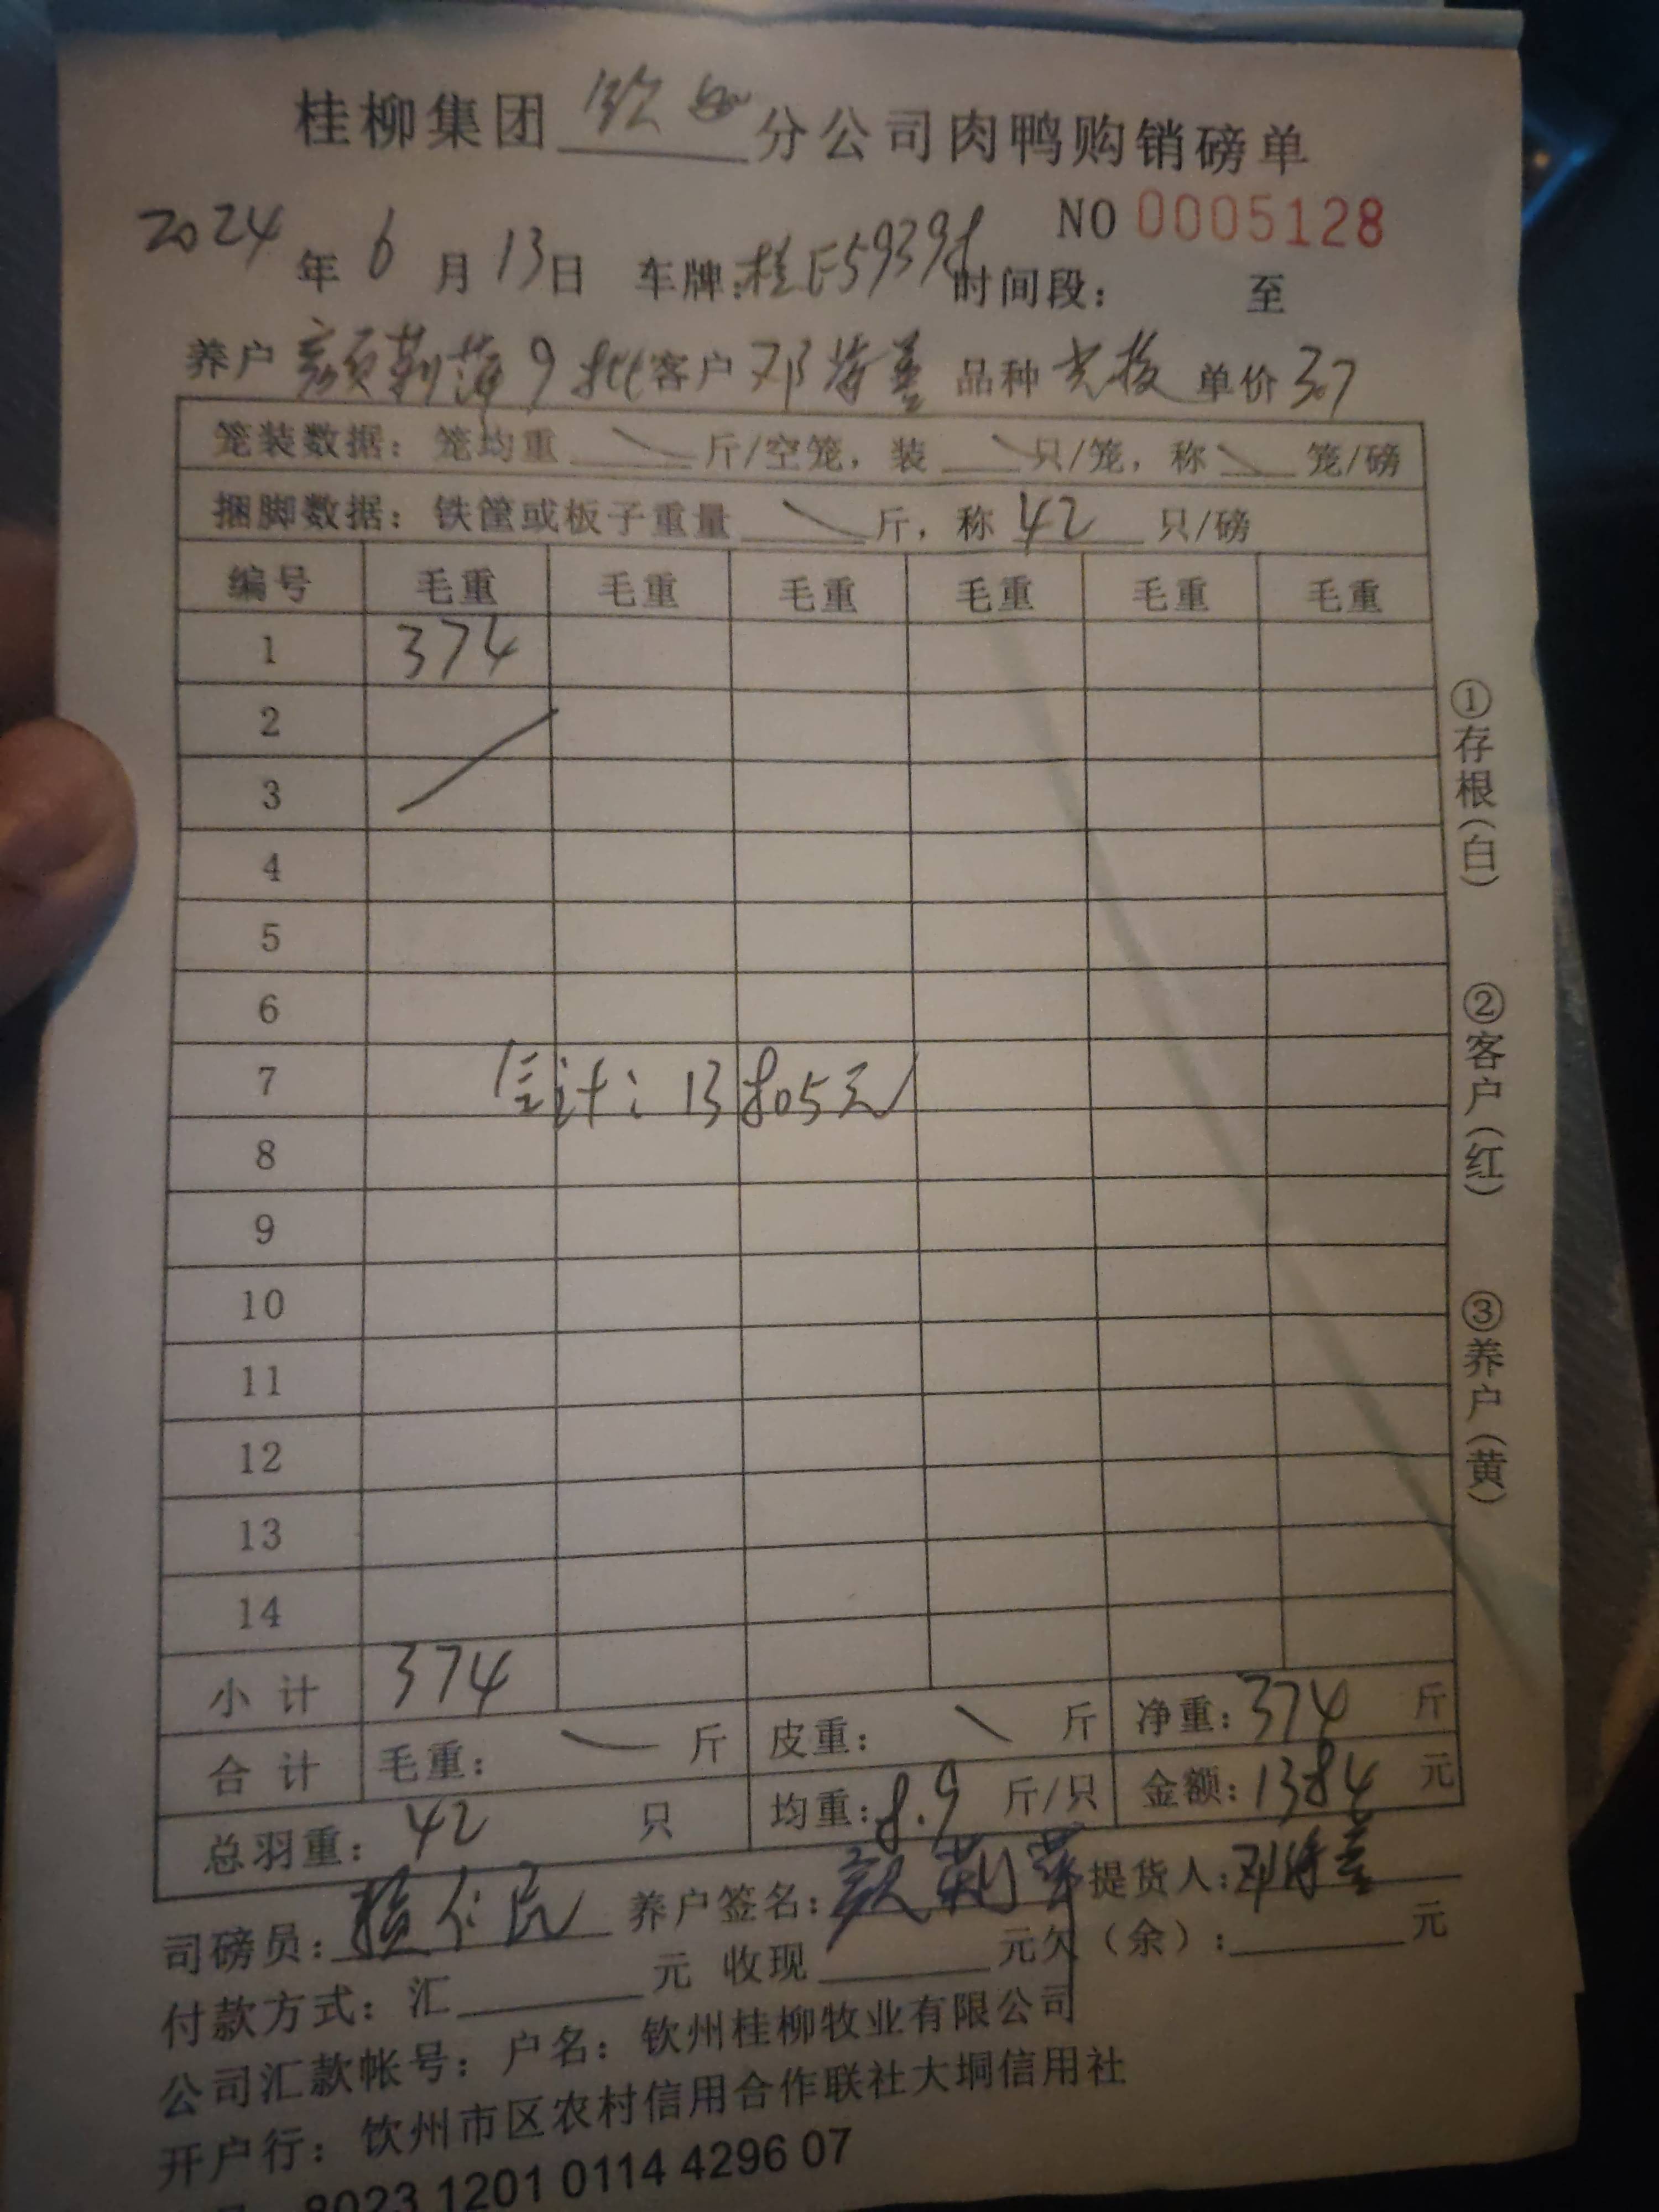 桂柳集团 钦州 分公司肉鸭购销磅单
NO 0005128
2024 年 6 月 13 日 车牌:桂E59398 时间段: 至
养户 颜莉萍 9批 客户 邓 品种 单价 3.7
笼装数据: 笼均重 斤/空笼, 装 只/笼, 称 笼/磅
捆脚数据: 铁筐或板子重量 斤, 称 42 只/磅
编号 毛重 毛重 毛重 毛重 毛重 毛重
1 374
2
3
4
5
6
7 合计: 13805元
8
9
10
11
12
13
14
小计 374
合计 毛重: 斤 皮重: 斤 净重: 374 斤
总羽重: 42 只 均重: 8.9 斤/只 金额: 1384 元
司磅员: 养户签名: 颜莉萍 提货人: 邓
付款方式: 汇 元 收现 元欠(余): 元
公司汇款帐号: 户名: 钦州桂柳牧业有限公司
开户行: 钦州市区农村信用合作联社大垌信用社
8023 1201 0114 4296 07
①存根(白)
②客户(红)
③养户(黄)